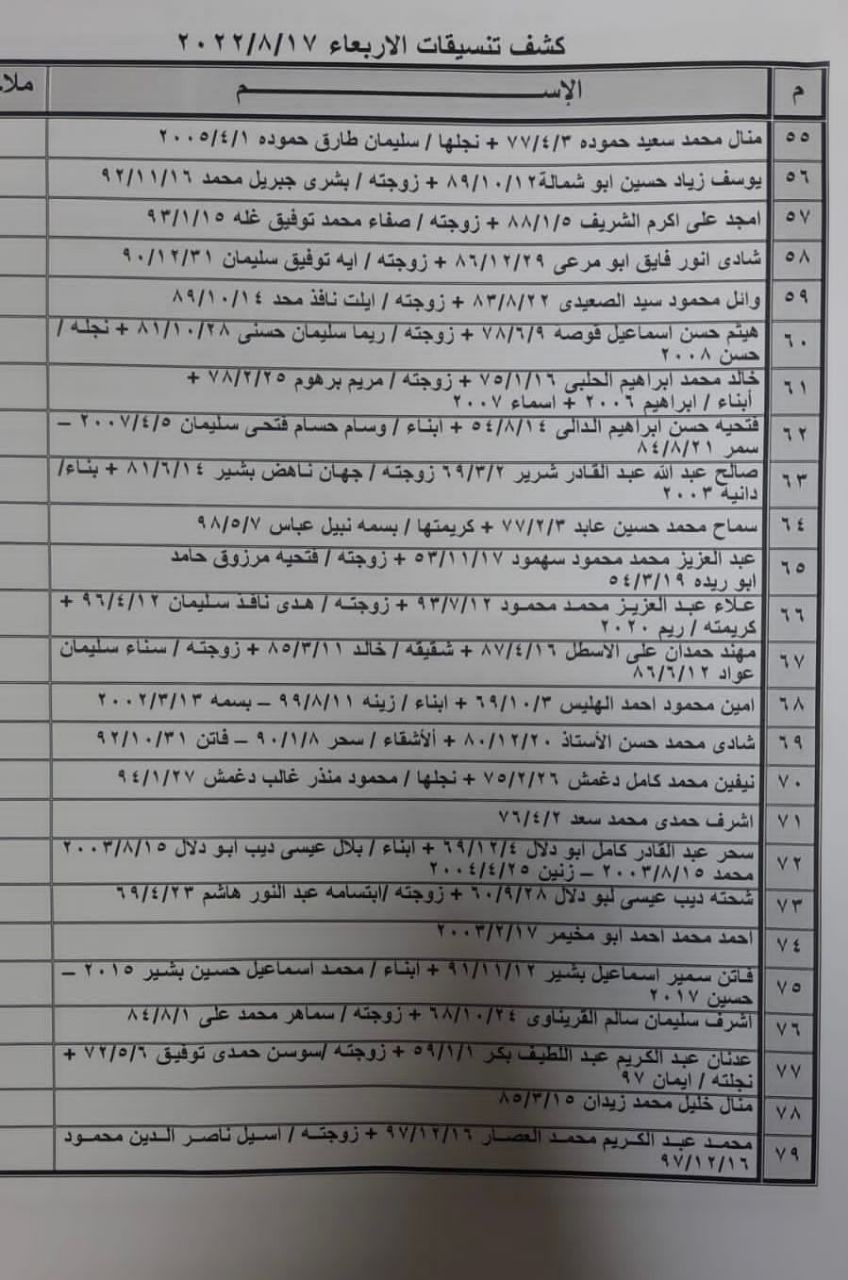 كشف تنسيقات الاربعاء ٢٠٢٢/٨/١٧
م الإســـم ملا
٥٥ منال محمد سعيد حموده ٧٧/٤/٣ + نجلها / سليمان طارق حموده ٢٠٠٥/٤/١
٥٦ يوسف زياد حسين ابو شمالة٨٩/١٠/١٢ + زوجته / بشرى جبريل محمد ٩٢/١١/١٦
٥٧ امجد على اكرم الشريف ٨٨/١/٥ + زوجته / صفاء محمد توفيق غله ٩٣/١/١٥
٥٨ شادى انور فايق ابو مرعى ٨٦/١٢/٢٩ + زوجته / ايه توفيق سليمان ٩٠/١٢/٣١
٥٩ وائل محمود سيد الصعيدى ٨٣/٨/٢٢ + زوجته / ايلت نافذ محد ٨٩/١٠/١٤
٦٠ هيثم حسن اسماعيل قوصه ٧٨/٦/٩ + زوجته / ريما سليمان حسنى ٨١/١٠/٢٨ + نجله /
حسن ٢٠٠٨
٦١ خالد محمد ابراهيم الحلبى ٧٥/١/١٦ + زوجته / مريم برهوم ٧٨/٢/٢٥ +
أبناء / ابراهيم ٢٠٠٦ + اسماء ٢٠٠٧
٦٢ فتحيه حسن ابراهيم الدالى ٥٤/٨/١٤ + ابناء / وسام حسام فتحى سليمان ٢٠٠٧/٤/٥ –
سمر ٨٤/٨/٢١
٦٣ صالح عبد الله عبد القادر شرير ٦٩/٣/٢ زوجته / جهان ناهض بشير ٨١/٦/١٤ + بناء/
دانيه ٢٠٠٣
٦٤ سماح محمد حسين عابد ٧٧/٢/٣ + كريمتها / بسمه نبيل عباس ٩٨/٥/٧
٦٥ عبد العزيز محمد محمود سهمود ٥٣/١١/١٧ + زوجته / فتحيه مرزوق حامد
ابو ريده ٥٤/٣/١٩
٦٦ علاء عبد العزيز محمد محمود ٩٣/٧/١٢ + زوجته / هدى نافذ سليمان ٩٦/٤/١٢ +
كريمته / ريم ٢٠٢٠
٦٧ مهند حمدان على الاسطل ٨٧/٤/١٦ + شقيقه / خالد ٨٥/٣/١١ + زوجته / سناء سليمان
عواد ٨٦/٦/١٢
٦٨ امين محمود احمد الهليس ٦٩/١٠/٣ + ابناء / زينه ٩٩/٨/١١ – بسمه ٢٠٠٢/٣/١٣
٦٩ شادى محمد حسن الأستاذ ٨٠/١٢/٢٠ + ألأشقاء / سحر ٩٠/١/٨ – فاتن ٩٢/١٠/٣١
٧٠ نيفين محمد كامل دغمش ٧٥/٢/٢٦ + نجلها / محمود منذر غالب دغمش ٩٤/١/٢٧
٧١ اشرف حمدى محمد سعد ٧٦/٤/٢
٧٢ سحر عبد القادر كامل ابو دلال ٦٩/١٢/٤ + ابناء / بلال عيسى ديب ابو دلال ٢٠٠٣/٨/١٥
محمد ٢٠٠٣/٨/١٥ – زنين ٢٠٠٤/٤/٢٥
٧٣ شحته ديب عيسى لبو دلال ٦٠/٩/٢٨ + زوجته /ابتسامه عبد النور هاشم ٦٩/٤/٢٣
٧٤ احمد محمد احمد ابو مخيمر ٢٠٠٣/٢/١٧
٧٥ فاتن سمير اسماعيل بشير ٩١/١١/١٢ + ابناء / محمد اسماعيل حسين بشير ٢٠١٥ –
حسين ٢٠١٧
٧٦ اشرف سليمان سالم القريناوى ٦٨/١٠/٢٤ + زوجته / سماهر محمد على ٨٤/٨/١
٧٧ عدنان عبد الكريم عبد اللطيف بكر ٥٩/١/١ + زوجته /سوسن حمدى توفيق ٧٢/٥/٦ +
نجلته / ايمان ٩٧
٧٨ منال خليل محمد زيدان ٨٥/٣/١٥
٧٩ محمد عبد الكريم محمد العصار ٩٧/١٢/١٦ + زوجته / اسيل ناصر الدين محمود
٩٧/١٢/١٦